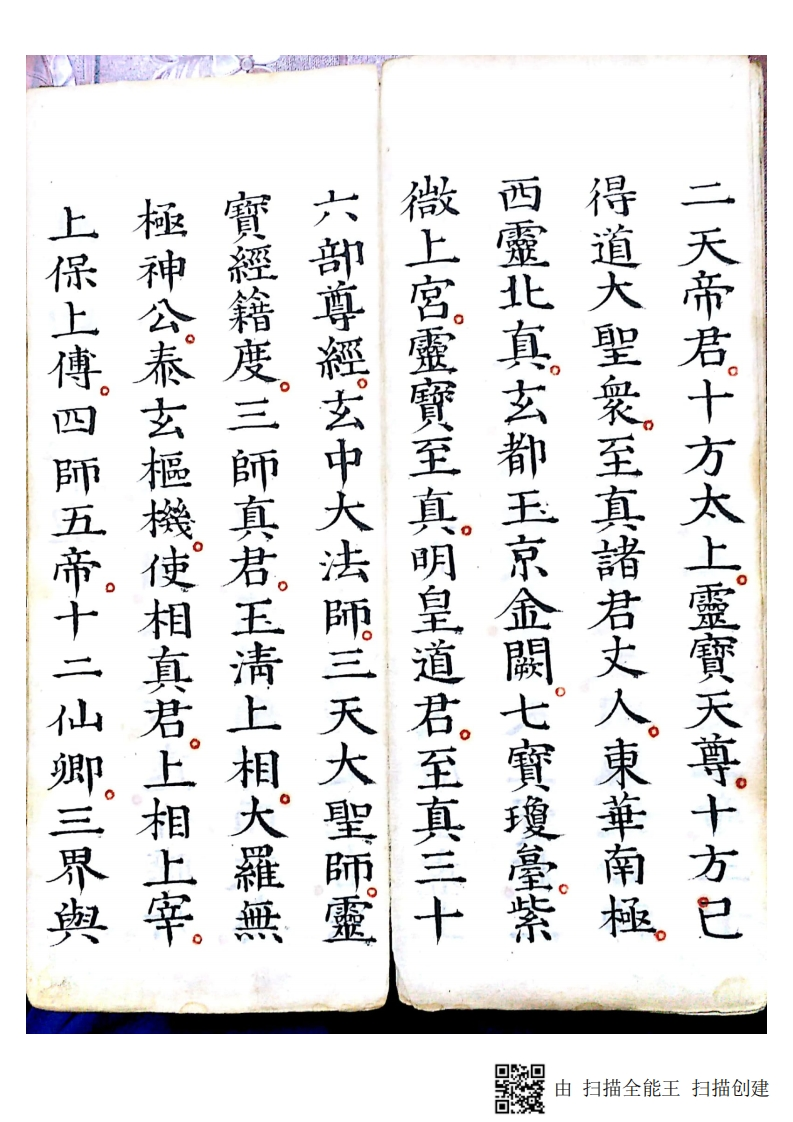 二天帝君。十方太上。靈寶天尊。十方已
得道大聖衆。至真諸君丈人。東華南極。
西靈北真。玄都玉京金闕。七寶瓊臺。紫
微上宮。靈寶至真。明皇道君。至真三十
六部尊經。玄中大法師。三天大聖師。靈
寶經籍度。三師真君。玉清上相。大羅無
極神公。泰玄樞機。使相真君。上相上宰。
上保上傅。四師五帝。十二仙卿。三界與
由 扫描全能王 扫描创建